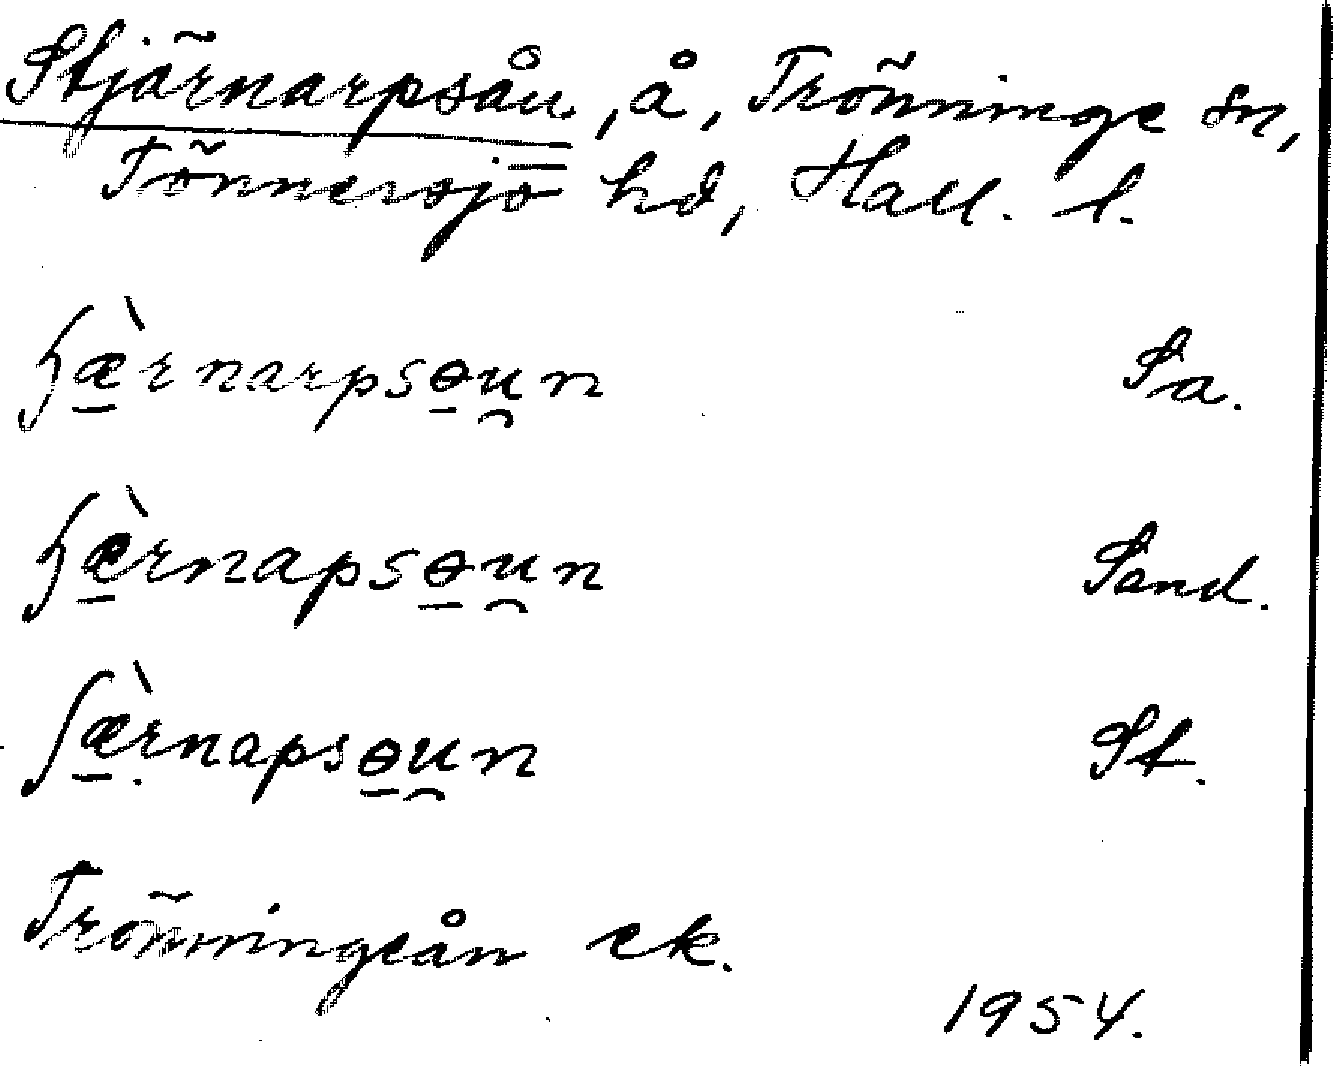 Stjärnarpsån, å, Trönninge sn,
Tönnersjö hd, Hall. l.
ɧæ̱̀rnarpsɵ̱u̯n Sa.
ɧæ̱̀rnapsɵ̱u̯n Sand.
ʃæ̱̀ṛnapsɵ̱u̯n St.
Trönningeån ek.
1954.